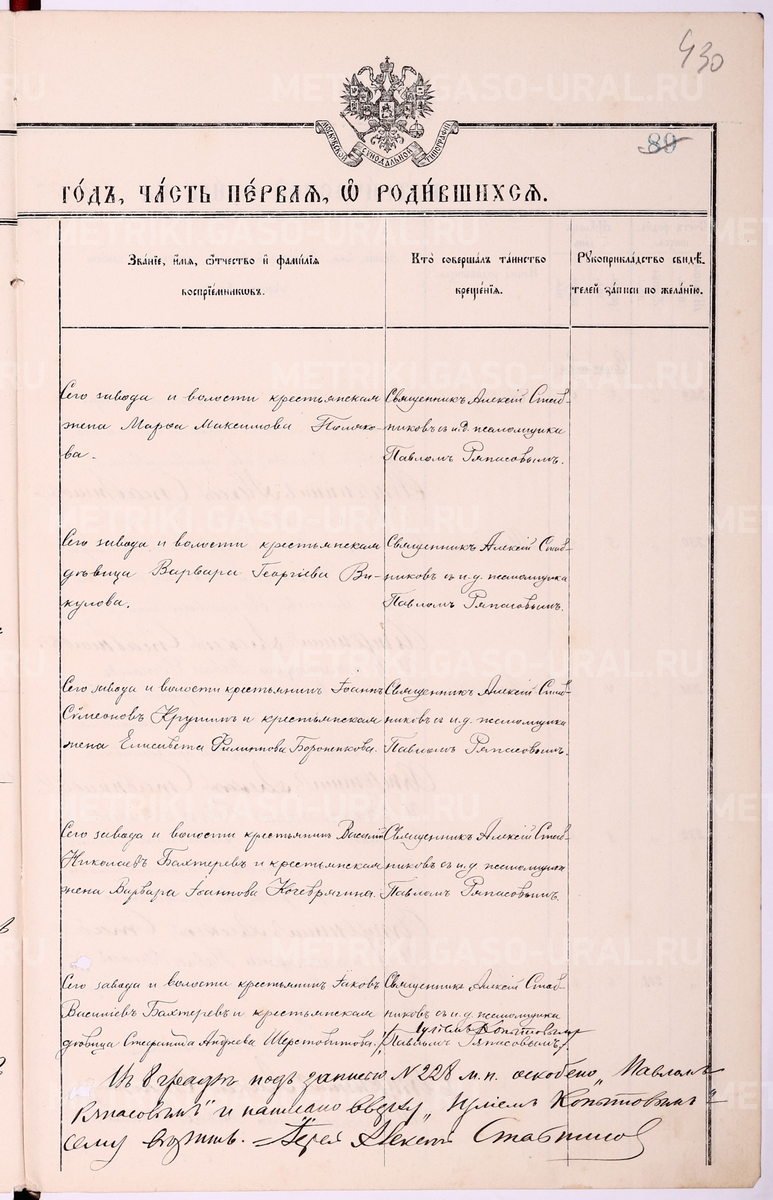 430
МОСКОВСКОЙ СѴНОДАЛЬНОЙ ТИПОГРАФІИ
80
METRIKI.GASO-URAL.RU
го́дъ, ча́сть пе́рвая, ѡ҆ роди́вшихся.
Зва́нїе, и҆́мя, ѻ҆́тчество и҆ фами́лїя
воспрїе́мникѡвъ.
Кто̀ соверша́лъ та́инство
креще́нїя.
Рꙋкоприкла́дство свидѣ́-
телей за́писи по жела́нїю.
Сего завода и волости крестьянская
жена Марѳа Максимова Поляко-
ва.
Священникъ Алексій Став-
никовъ съ и.д. псаломщика
Павломъ Ряпасовымъ.
Сего завода и волости крестьянская
дѣвица Варвара Георгіева Ви-
кулова.
Священникъ Алексій Став-
никовъ съ и.д. псаломщика
Павломъ Ряпасовымъ.
Сего завода и волости крестьянинъ Іоаннъ
Сѵмеоновъ Крупинъ и крестьянская
жена Елисавета Филиппова Бороненкова.
Священникъ Алексій Став-
никовъ съ и.д. псаломщика
Павломъ Ряпасовымъ.
Сего завода и волости крестьянинъ Василій
Николаевъ Бахтеревъ и крестьянская
жена Варвара Іоаннова Кочеврягина.
Священникъ Алексій Став-
никовъ съ и.д. псаломщика
Павломъ Ряпасовымъ.
Сего завода и волости крестьянинъ Іаковъ
Василіевъ Бахтеревъ и крестьянская
дѣвица Стефанида Андреева Шерстобитова.
Священникъ Алексій Став-
никовъ съ и.д. псаломщика
Іуліемъ Копытовымъ
(Павломъ Ряпасовымъ)
Въ 8 графѣ подъ записью № 228 м.п. оскоблено „Павломъ
Ряпасовымъ" и написано вверху „Іуліемъ Копытовымъ"
сему вѣрить. Іерей Алексій Ставников